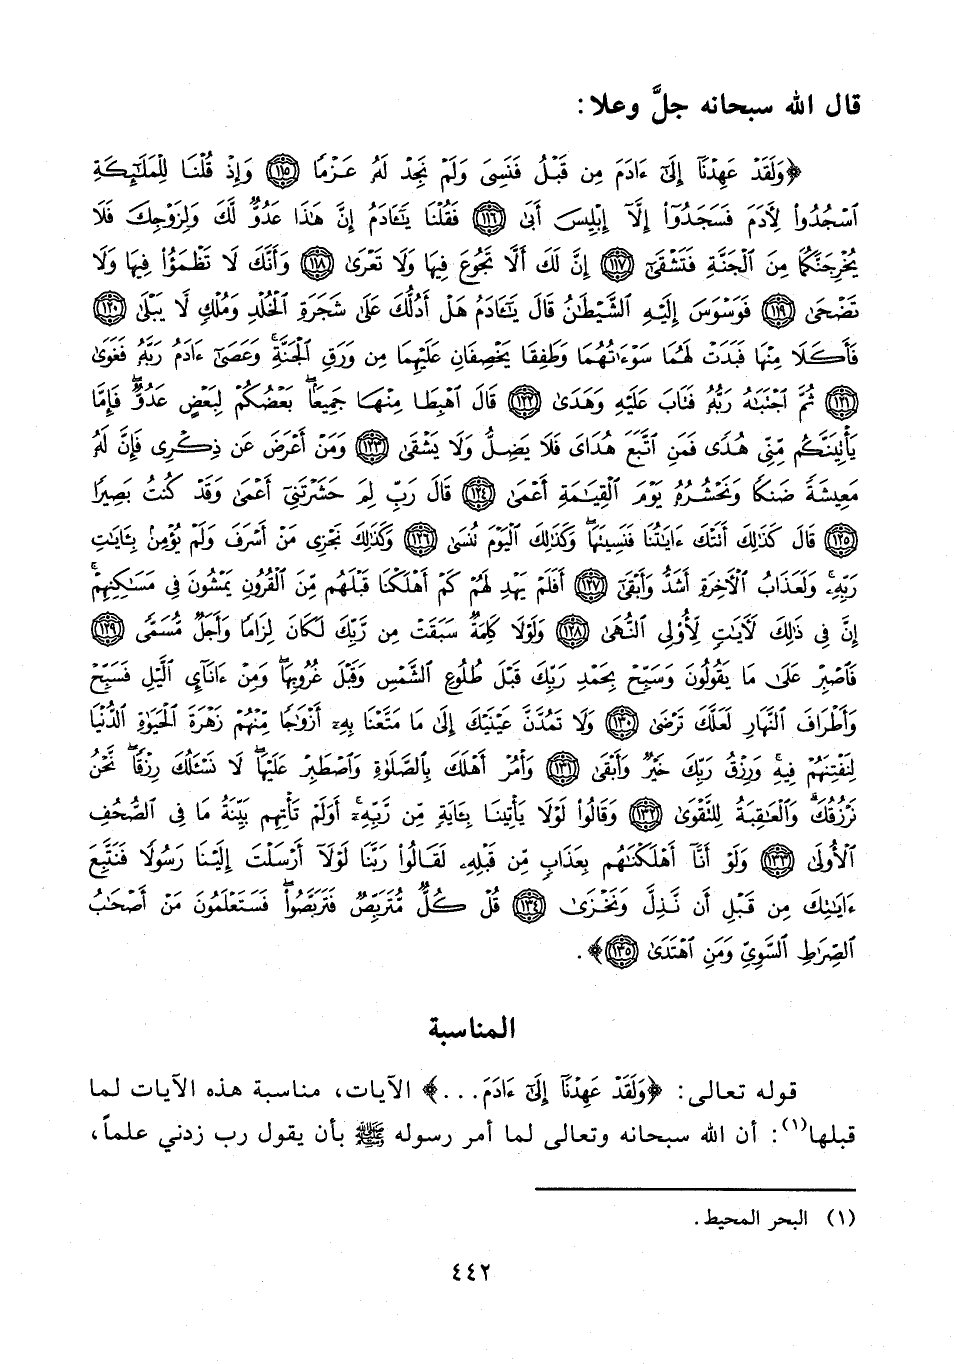 قال الله سبحانه جلَّ وعلا:
﴿وَلَقَدْ عَهِدْنَآ إِلَىٰٓ ءَادَمَ مِن قَبْلُ فَنَسِىَ وَلَمْ نَجِدْ لَهُۥ عَزْمًا ﴿١١٥﴾ وَإِذْ قُلْنَا لِلْمَلَٰٓئِكَةِ
ٱسْجُدُوا۟ لِءَادَمَ فَسَجَدُوٓا۟ إِلَّآ إِبْلِيسَ أَبَىٰ ﴿١١٦﴾ فَقُلْنَا يَٰٓـَٔادَمُ إِنَّ هَٰذَا عَدُوٌّ لَّكَ وَلِزَوْجِكَ فَلَا
يُخْرِجَنَّكُمَا مِنَ ٱلْجَنَّةِ فَتَشْقَىٰٓ ﴿١١٧﴾ إِنَّ لَكَ أَلَّا تَجُوعَ فِيهَا وَلَا تَعْرَىٰ ﴿١١٨﴾ وَأَنَّكَ لَا تَظْمَؤُا۟ فِيهَا وَلَا
تَضْحَىٰ ﴿١١٩﴾ فَوَسْوَسَ إِلَيْهِ ٱلشَّيْطَٰنُ قَالَ يَٰٓـَٔادَمُ هَلْ أَدُلُّكَ عَلَىٰ شَجَرَةِ ٱلْخُلْدِ وَمُلْكٍ لَّا يَبْلَىٰ ﴿١٢٠﴾
فَأَكَلَا مِنْهَا فَبَدَتْ لَهُمَا سَوْءَٰتُهُمَا وَطَفِقَا يَخْصِفَانِ عَلَيْهِمَا مِن وَرَقِ ٱلْجَنَّةِ ۚ وَعَصَىٰٓ ءَادَمُ رَبَّهُۥ فَغَوَىٰ
﴿١٢١﴾ ثُمَّ ٱجْتَبَٰهُ رَبُّهُۥ فَتَابَ عَلَيْهِ وَهَدَىٰ ﴿١٢٢﴾ قَالَ ٱهْبِطَا مِنْهَا جَمِيعًۢا ۖ بَعْضُكُمْ لِبَعْضٍ عَدُوٌّ ۖ فَإِمَّا
يَأْتِيَنَّكُم مِّنِّى هُدًى فَمَنِ ٱتَّبَعَ هُدَاىَ فَلَا يَضِلُّ وَلَا يَشْقَىٰ ﴿١٢٣﴾ وَمَنْ أَعْرَضَ عَن ذِكْرِى فَإِنَّ لَهُۥ
مَعِيشَةً ضَنكًا وَنَحْشُرُهُۥ يَوْمَ ٱلْقِيَٰمَةِ أَعْمَىٰ ﴿١٢٤﴾ قَالَ رَبِّ لِمَ حَشَرْتَنِىٓ أَعْمَىٰ وَقَدْ كُنتُ بَصِيرًا
﴿١٢٥﴾ قَالَ كَذَٰلِكَ أَتَتْكَ ءَايَٰتُنَا فَنَسِيتَهَا ۖ وَكَذَٰلِكَ ٱلْيَوْمَ تُنسَىٰ ﴿١٢٦﴾ وَكَذَٰلِكَ نَجْزِى مَنْ أَسْرَفَ وَلَمْ يُؤْمِنۢ بِـَٔايَٰتِ
رَبِّهِۦ ۚ وَلَعَذَابُ ٱلْءَاخِرَةِ أَشَدُّ وَأَبْقَىٰٓ ﴿١٢٧﴾ أَفَلَمْ يَهْدِ لَهُمْ كَمْ أَهْلَكْنَا قَبْلَهُم مِّنَ ٱلْقُرُونِ يَمْشُونَ فِى مَسَٰكِنِهِمْ ۗ
إِنَّ فِى ذَٰلِكَ لَءَايَٰتٍ لِّأُو۟لِى ٱلنُّهَىٰ ﴿١٢٨﴾ وَلَوْلَا كَلِمَةٌ سَبَقَتْ مِن رَّبِّكَ لَكَانَ لِزَامًا وَأَجَلٌ مُّسَمًّى ﴿١٢٩﴾
فَٱصْبِرْ عَلَىٰ مَا يَقُولُونَ وَسَبِّحْ بِحَمْدِ رَبِّكَ قَبْلَ طُلُوعِ ٱلشَّمْسِ وَقَبْلَ غُرُوبِهَا ۖ وَمِنْ ءَانَآئِ ٱلَّيْلِ فَسَبِّحْ
وَأَطْرَافَ ٱلنَّهَارِ لَعَلَّكَ تَرْضَىٰ ﴿١٣٠﴾ وَلَا تَمُدَّنَّ عَيْنَيْكَ إِلَىٰ مَا مَتَّعْنَا بِهِۦٓ أَزْوَٰجًا مِّنْهُمْ زَهْرَةَ ٱلْحَيَوٰةِ ٱلدُّنْيَا
لِنَفْتِنَهُمْ فِيهِ ۚ وَرِزْقُ رَبِّكَ خَيْرٌ وَأَبْقَىٰ ﴿١٣١﴾ وَأْمُرْ أَهْلَكَ بِٱلصَّلَوٰةِ وَٱصْطَبِرْ عَلَيْهَا ۖ لَا نَسْـَٔلُكَ رِزْقًا ۖ نَّحْنُ
نَرْزُقُكَ ۗ وَٱلْعَٰقِبَةُ لِلتَّقْوَىٰ ﴿١٣٢﴾ وَقَالُوا۟ لَوْلَا يَأْتِينَا بِـَٔايَةٍ مِّن رَّبِّهِۦٓ ۚ أَوَلَمْ تَأْتِهِم بَيِّنَةُ مَا فِى ٱلصُّحُفِ
ٱلْأُولَىٰ ﴿١٣٣﴾ وَلَوْ أَنَّآ أَهْلَكْنَٰهُم بِعَذَابٍ مِّن قَبْلِهِۦ لَقَالُوا۟ رَبَّنَا لَوْلَآ أَرْسَلْتَ إِلَيْنَا رَسُولًا فَنَتَّبِعَ
ءَايَٰتِكَ مِن قَبْلِ أَن نَّذِلَّ وَنَخْزَىٰ ﴿١٣٤﴾ قُلْ كُلٌّ مُّتَرَبِّصٌ فَتَرَبَّصُوا۟ ۖ فَسَتَعْلَمُونَ مَنْ أَصْحَٰبُ
ٱلصِّرَٰطِ ٱلسَّوِىِّ وَمَنِ ٱهْتَدَىٰ ﴿١٣٥﴾﴾.
المناسبة
قوله تعالى: ﴿وَلَقَدْ عَهِدْنَآ إِلَىٰٓ ءَادَمَ...﴾ الآيات، مناسبة هذه الآيات لما
قبلها(١): أن الله سبحانه وتعالى لما أمر رسوله ﷺ بأن يقول رب زدني علماً،
(١) البحر المحيط.
٤٤٢